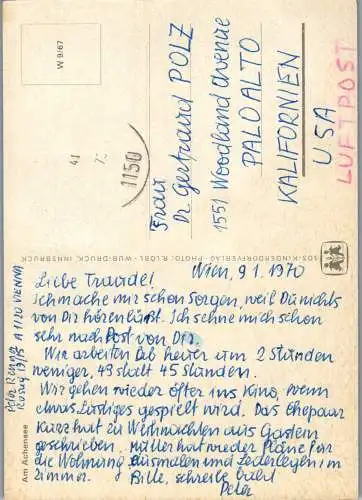 W 9/67
1150
Frau
Dr. Gertraud POLZ
1551 Woodland avenue
PALO ALTO
KALIFORNIEN
USA
LUFTPOST
SOS-KINDERDORFVERLAG · PHOTO: R. LÖBL · WUB-DRUCK, INNSBRUCK
Am Achensee
Peter
A 1120 VIENNA
Wien, 9 1. 1970
Liebe Traude!
Ich mache mir schon Sorgen, weil Du nichts
von Dir hören läßt. Ich sehne mich schon
sehr nach Post von Dir.
Wir arbeiten ab heuer um 2 Stunden
weniger, 43 statt 45 Stunden.
Wir gehen wieder öfter ins Kino, wenn
etwas Lustiges gespielt wird. Das Ehepaar
Kurz hat zu Weihnachten aus Gastein
geschrieben. Müller hat wieder Pläne für
die Wohnung Ausmalen und Federlegen im
Zimmer. Bitte, schreibe bald
Peter